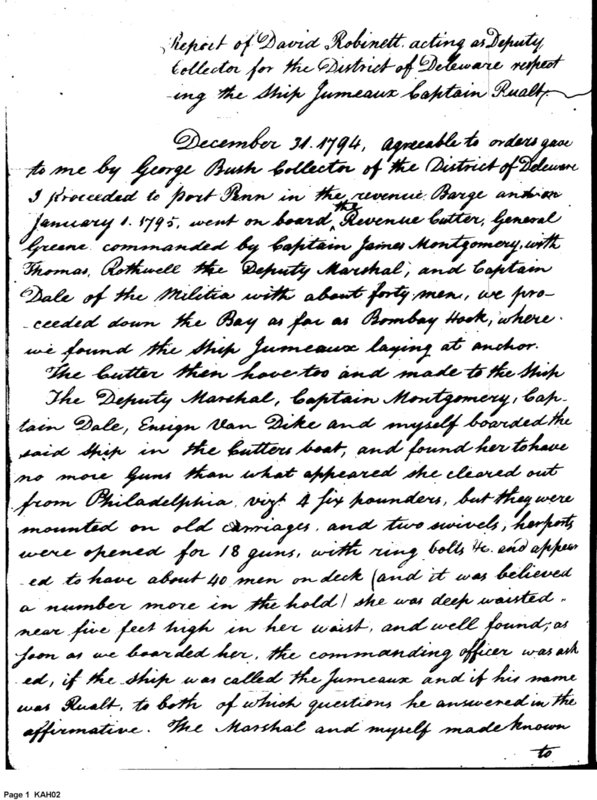 Report of David Robinett acting as Deputy
Collector for the District of Deleware respect
ing the Ship Jumeaux Captain Rualt,
December 31. 1794, agreeable to orders gave
to me by George Bush Collector of the District of Deleware
I proceeded to port Penn in the revenue Barge and on
January 1. 1795, went on board the Revenue Cutter, General
Greene commanded by Captain James Montgomery, with
Thomas, Rothwell the Deputy Marshal, and Captain
Dale of the Militia with about forty men, we pro-
-ceeded down the Bay as far as Bombay Hook, where
we found the Ship Jumeaux laying at anchor.
The Cutter then hove too and made to the Ship
The Deputy Marshal, Captain Montgomery, Cap-
tain Dale, Ensign Van Dike and myself boarded the
said Ship in the Cutters boat, and found her to have
no more Guns than what appeared she cleared out
from Philadelphia vizt 4 six pounders, but they were
mounted on old carriages, and two swivels, her ports
were opened for 18 guns, with ring bolts &c. and appear
-ed to have about 40 men on deck (and it was believed
a number more in the hold) she was deep waisted
near five feet high in her waist, and well found; as
soon as we boarded her, the commanding officer was ask
ed, if the Ship was called the Jumeaux and if his name
was Rualt, to both of which questions he answered in the
affirmative. The Marshal and myself made known
to
Page 1 KAH02